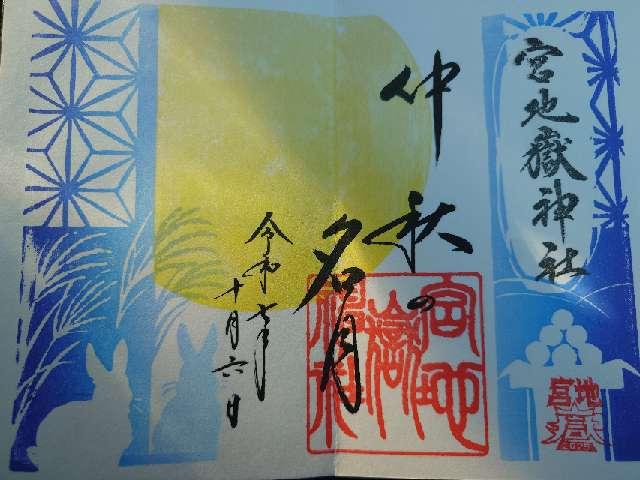 宮地嶽神社
仲秋の
名月
令和七年
十月六日
宮地
嶽
神社
宮地
嶽
2025